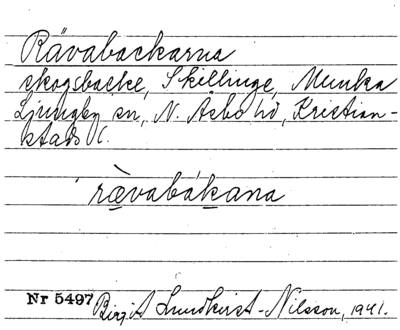 Rävabackarna
skogsbacke, Skillinge, Munka
Ljungby sn, N. Åsbo hd, Kristian-
stads l.
ræ̀vabákana
Nr 5497 Birgit Lundkvist-Nilsson, 1941.